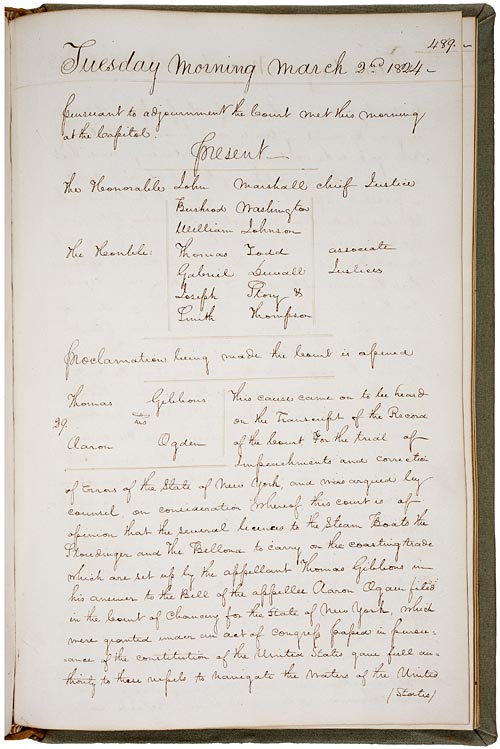 489.
Tuesday Morning March 2nd 1824
Pursuant to adjournment the Court met this morning
at the Capitol.
Present
The Honorable John Marshall Chief Justice
Bushrod Washington
William Johnson
The Honble: Thomas Todd associate
Gabriel Duvall Justices
Joseph Story &
Smith Thompson
Proclamation being made the Court is opened
Thomas Gibbons
vs
29.
Aaron Ogden
This cause came on to be heard
on the Transcript of the Record
of the Court For the trial of
Impeachments and correction
of Errors of the State of New York, and was argued by
counsel on consideration whereof this court is of
opinion that the several licences to the Steam Boats the
Stoudinger and The Bellona to carry on the coasting trade
which are set up by the appellant Thomas Gibbons in
his answer to the Bill of the appellee Aaron Ogden filed
in the Court of Chancery for the State of New York, which
were granted under an act of Congress passed in pursu-
-ance of the constitution of the United States gave full au-
thority to those vessels to navigate the waters of the United
(States)